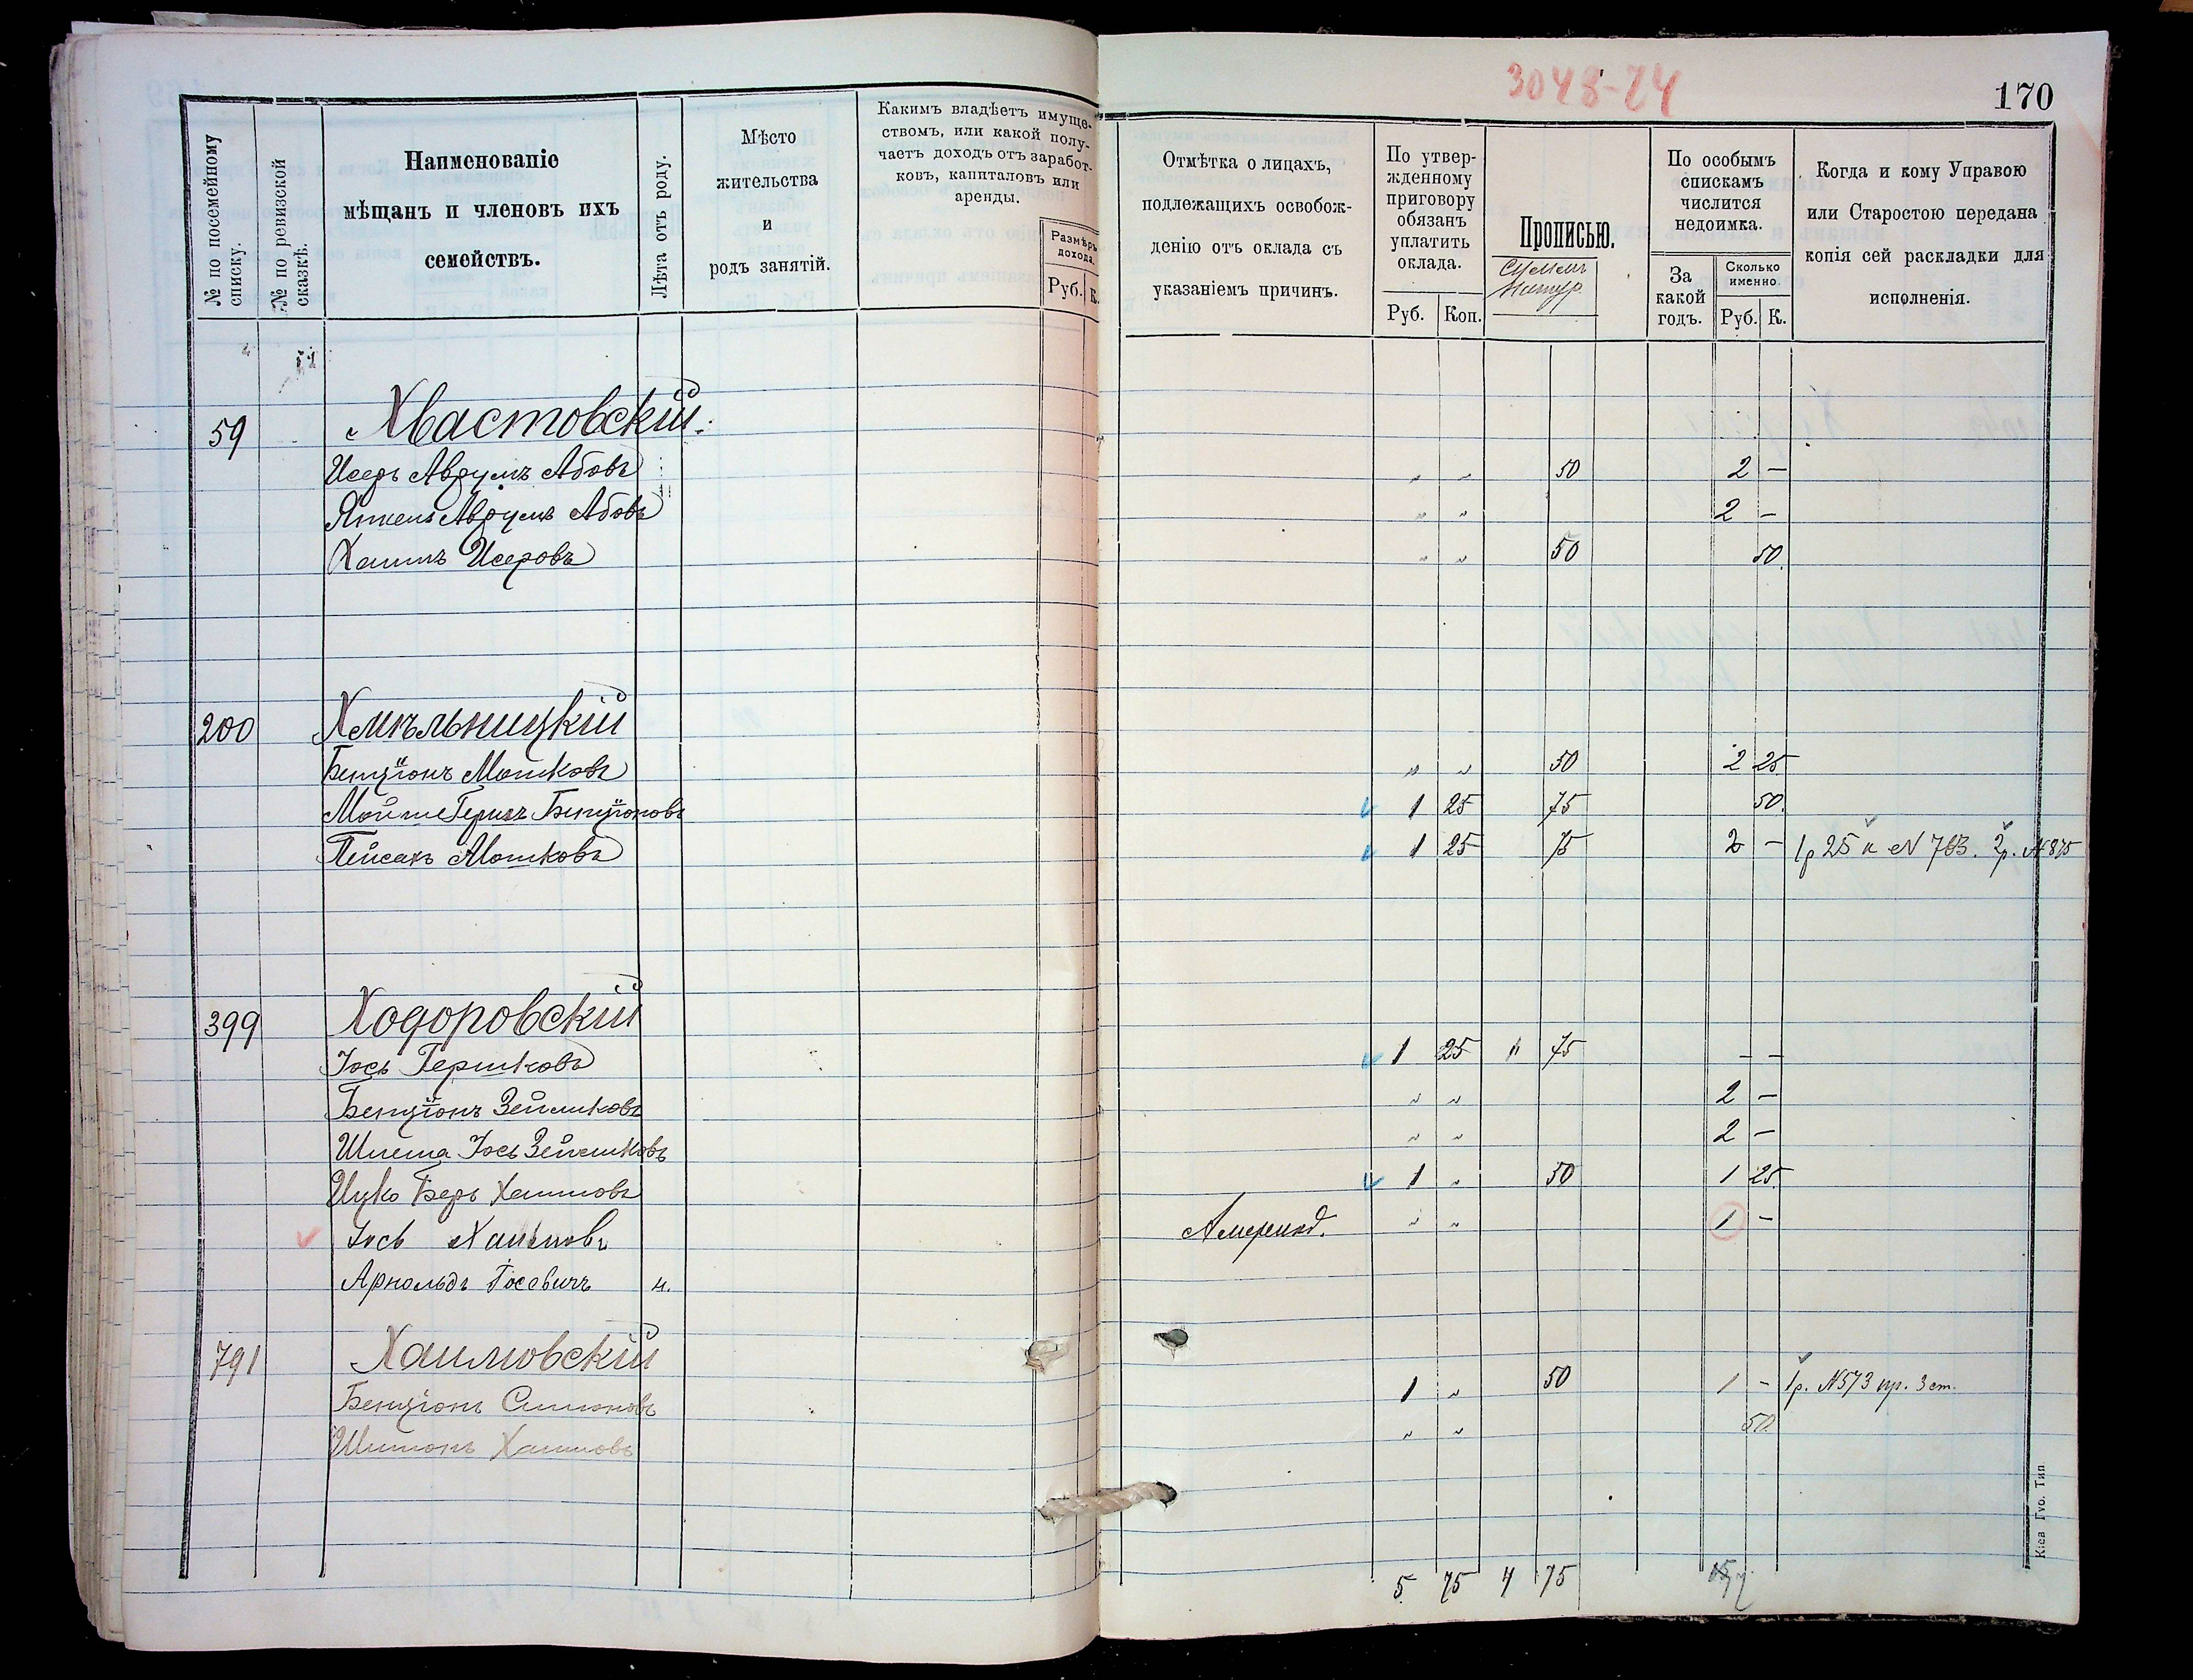 3048-24
170
№ по посемейному списку.
№ по ревизской сказкѣ.
Наименованіе
мѣщанъ и членовъ ихъ
семействъ.
Лѣта отъ роду.
Мѣсто
жительства
и
родъ занятій.
Какимъ владѣетъ имуще-
ствомъ, или какой полу-
чаетъ доходъ отъ заработ-
ковъ, капиталовъ или
аренды.
Размѣръ
дохода.
Руб. К.
Отмѣтка о лицахъ,
подлежащихъ освобож-
денію отъ оклада съ
указаніемъ причинъ.
По утвер-
жденному
приговору
обязанъ
уплатить
оклада.
Руб. Коп.
Прописью.
По особымъ
спискамъ
числится
недоимка.
За
какой
годъ.
Сколько
именно.
Руб. К.
Когда и кому Управою
или Старостою передана
копія сей раскладки для
исполненія.
59 Хвастовскій.
Исеръ Аврумъ Абовъ „ „ 50 2 —
Янкель Аврумъ Абовъ „ „ 2 —
Хаимъ Исеровъ „ „ 50 50.
200 Хмѣльницкій
Бенціонъ Мошковъ „ „ 50 2 25
Мойше Гершъ Бенціоновъ 1 25 75 50.
Пейсахъ Мошковъ 1 25 75 2 — 1р 25 к № 763. 2р. № 875
399 Ходоровскій
Іось Гершковъ 1 25 „ 75 — —
Бенціонъ Зейликовъ „ „ 2 —
Шлема Іось Зейликовъ „ „ 2 —
Ицко Беръ Хаимовъ 1 „ 50 1 25.
Іось Хаимовъ „ „ 1 —
Арнольдъ Іосевичъ 4.
791 Хаимовскій
Бенціонъ Симоновъ 1 „ 50 1 — 1р. №573 пр. 3 ст.
Шимонъ Хаимовъ „ „ 50.
5. 75 4 75
Кіевъ Губ. Тип.